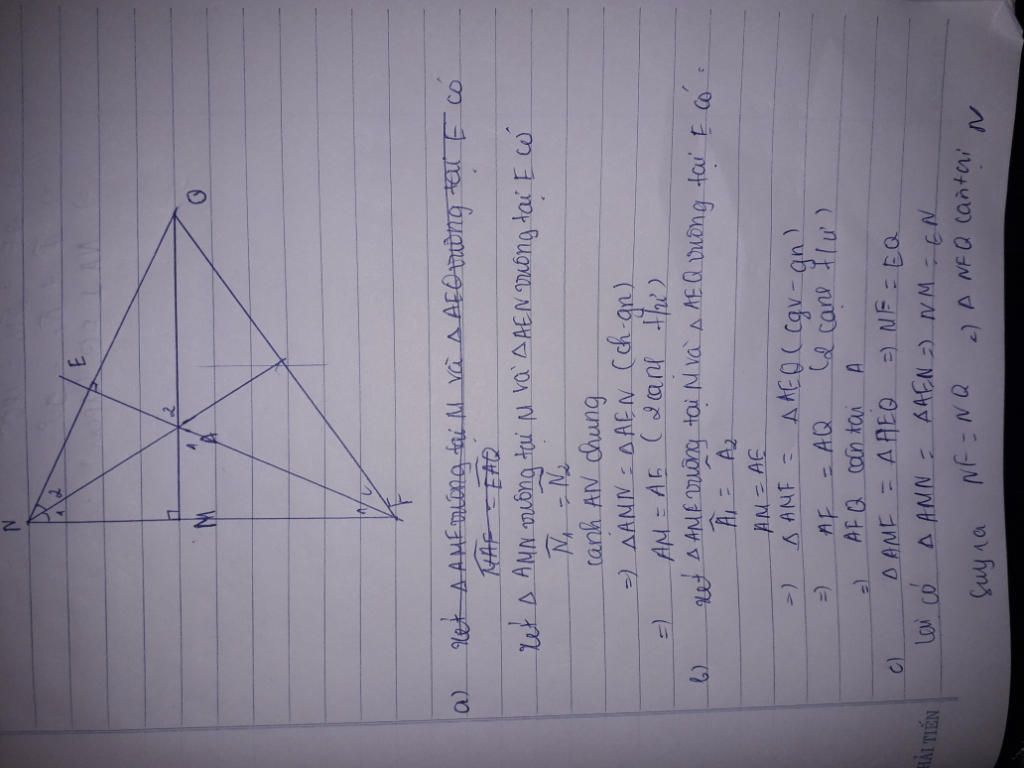 N
E
1 2
1 2
A
M
Q
F
a) xét Δ AMF vuông tại M và Δ AEQ vuông tại E có
NAF = EAQ
xét Δ AMN vuông tại M và Δ AEN vuông tại E có
N1 = N2
cạnh AN chung
=) Δ AMN = Δ AEN (ch-gn)
=) AM = AE ( 2 cạnh t/ứ)
b) xét Δ AMF vuông tại M và Δ AEQ vuông tại E có :
A1 = A2
AM = AE
=) Δ AMF = Δ AEQ ( cgv - gn)
=) AF = AQ (2 cạnh t/ứ)
=) AFQ cân tại A
c) Δ AMF = Δ AEQ =) NF = EQ
lại có Δ AMN = Δ AEN =) NM = EN
suy ra NF = NQ =) Δ NFQ cân tại N
HẢI TIẾN